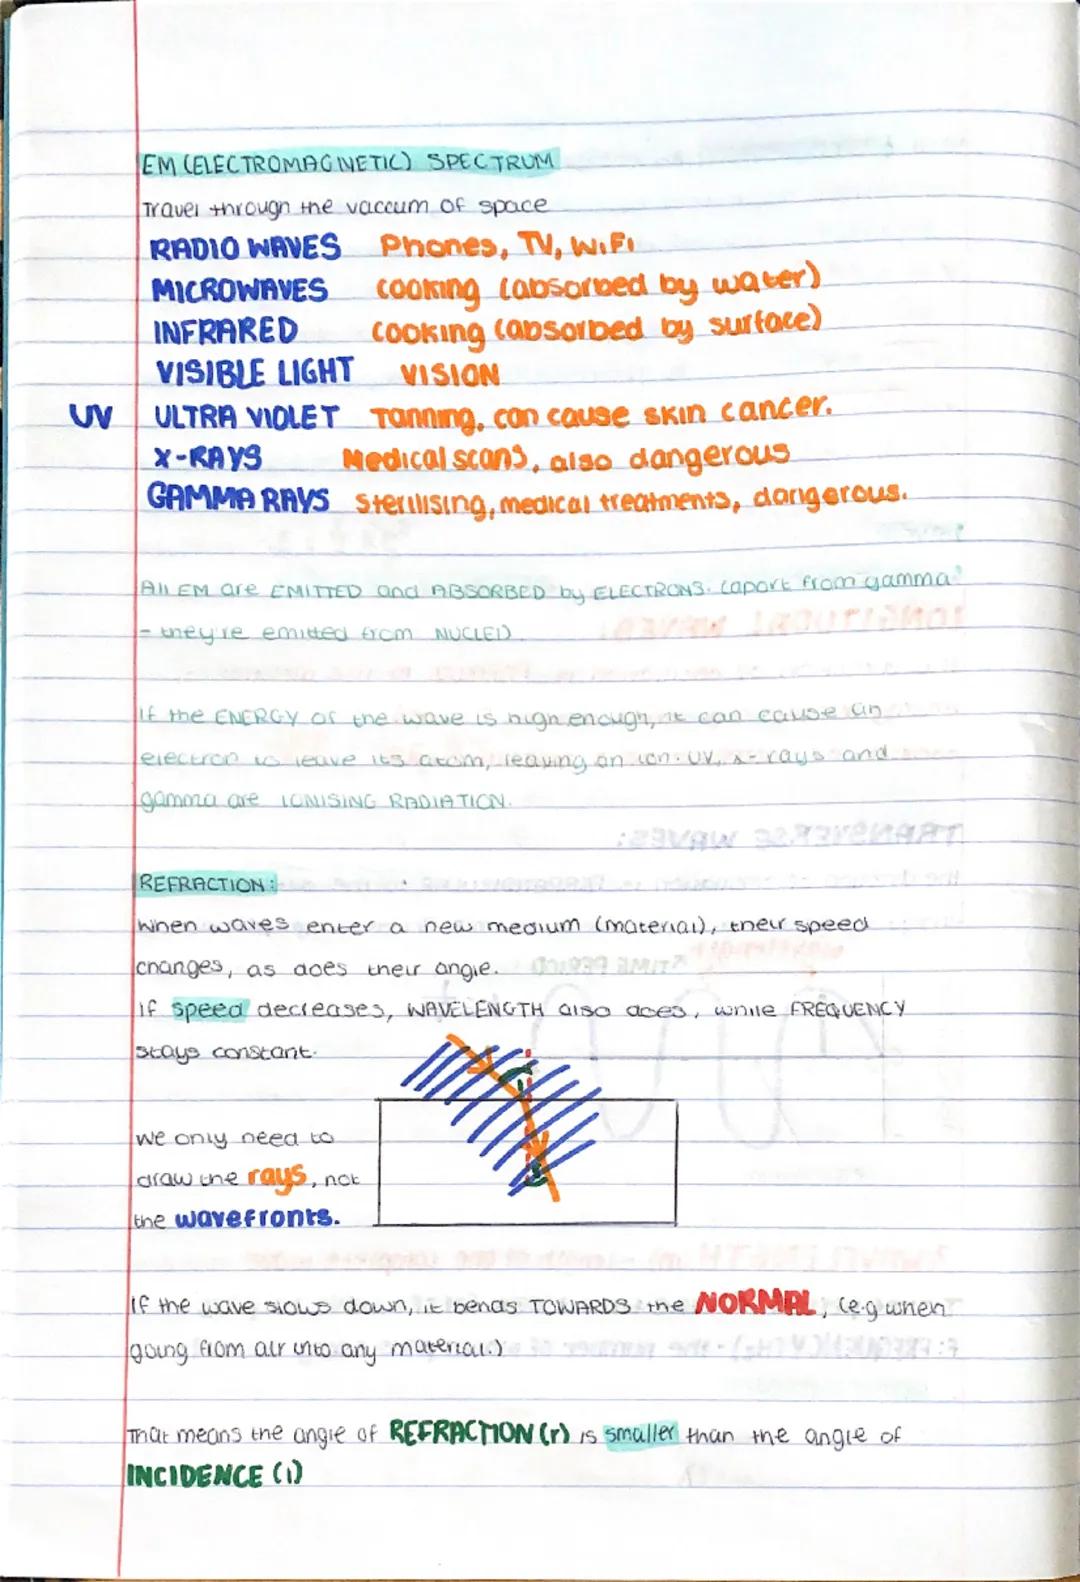 EM (ELECTROMAGNETIC) SPECTRUM
Travel through the vaccum of space
RADIO WAVES Phones, TV, WiFi
MICROWAVES cooking (absorbed by water)
INFRARED cooking (absorbed by surface)
VISIBLE LIGHT VISION
UV ULTRA VIOLET Tanning, can cause skin cancer.
X-RAYS Medical scans, also dangerous
GAMMA RAYS Sterilising, medical treatments, dangerous.
All EM are EMITTED and ABSORBED by ELECTRONS. (apart from gamma
- they're emitted from NUCLEI)
If the ENERGY of the wave is high enough, it can cause an
electron to leave its atom, leaving an ion. UV, x-rays and
gamma are IONISING RADIATION.
REFRACTION:
When waves enter a new medium (material), their speed
changes, as does their angle.
If speed decreases, WAVELENGTH also does, while FREQUENCY
stays constant.
We only need to
draw the rays, not
the wavefronts.
If the wave slows down, it bends TOWARDS the NORMAL, (e.g when
going from air into any material.)
That means the angle of REFRACTION (r) is smaller than the angle of
INCIDENCE (i)